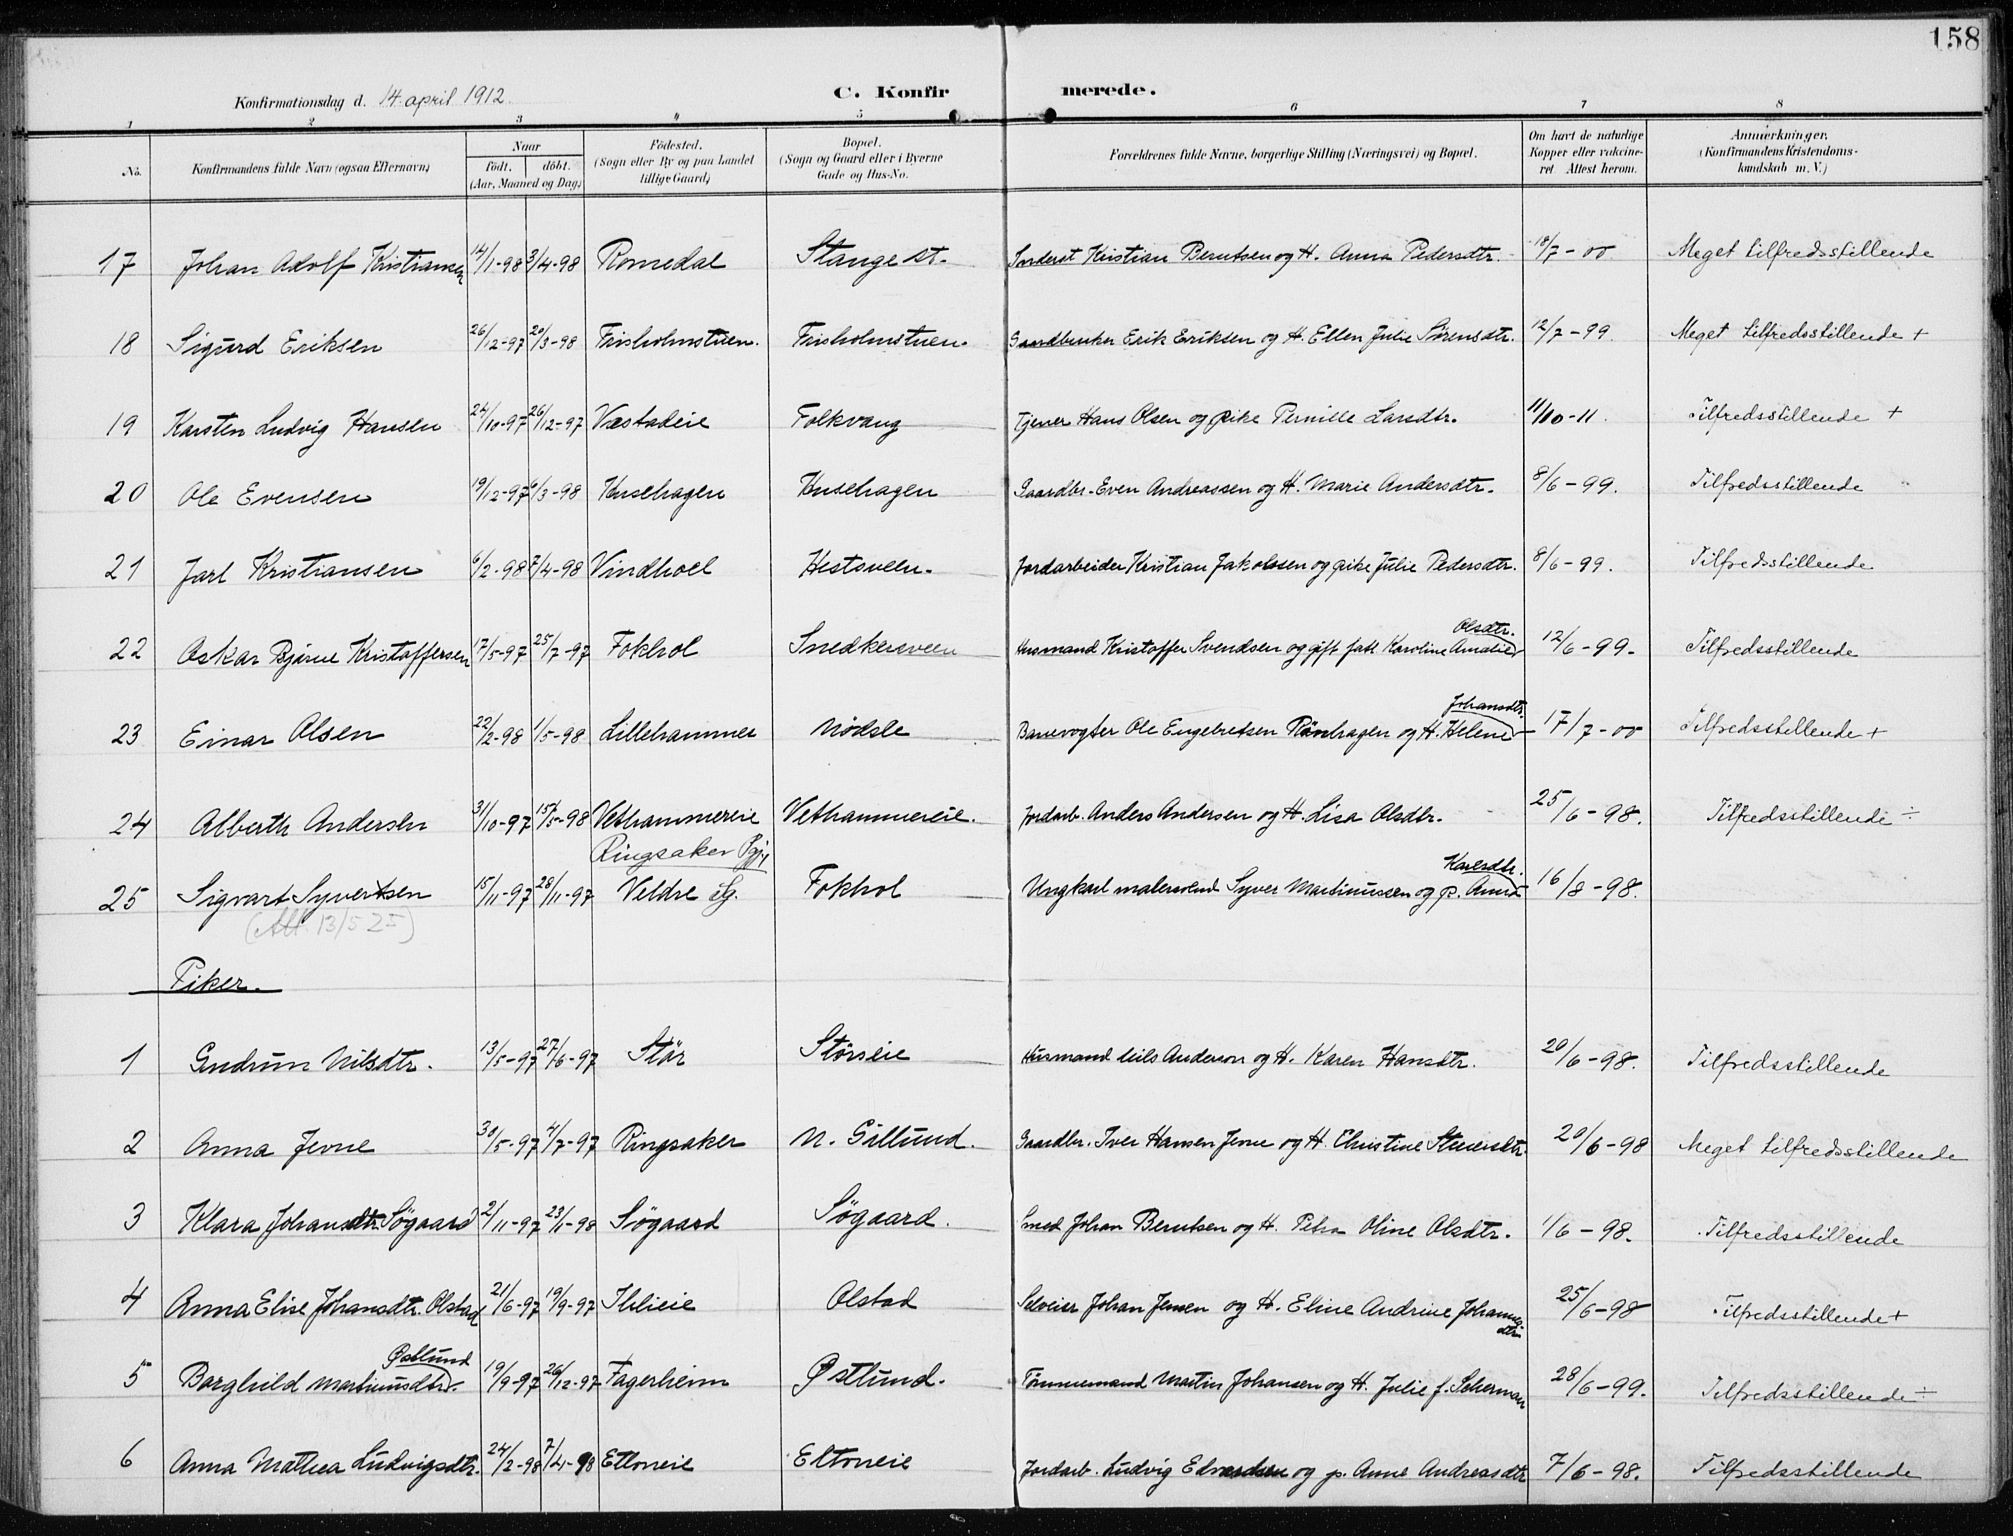 158
Konfirmationsdag d. 14. april 1912.
C. Konfirmerede.
1 2 3 4 5 6 7 8
No. Konfirmandens fulde Navn (ogsaa Efternavn) Naar født. døbt. (Aar, Maaned og Dag.) Fødested. (Sogn eller By og paa Landet tillige Gaard) Bopæl. (Sogn og Gaard eller i Byerne Gade og Hus-No. Forældrenes fulde Navne, borgerlige Stilling (Næringsvei) og Bopæl. Om havt de naturlige Kopper eller vakcineret Attest herom. Anmærkninger, (Konfirmandens Kristendomskundskab m. V.)
17 Johan Adolf Kristiansen 14/1-98 3/4-98 Romedal Stange st. Kristian Berntsen og H. Anna Pedersdtr. 18/7-00 Meget tilfredsstillende
18 Sigurd Eriksen 26/12-97 20/3-98 Frisholmstuen. Frisholmstuen. Gaardbruker Erik Eriksen og H. Ellen Julie Sørensdtr. 12/7-99. Meget tilfredsstillende +
19 Karsten Ludvig Hansen 24/10-97 26/12-97 Væstadeie Folkvang Tjener Hans Olsen og pike Pernille Larsdtr. 11/10-11. Tilfredsstillende +
20 Ole Evensen 19/12-97 /3-98 Husehagen Husehagen Gaardbr. Even Andreassen og H. Marie Andersdtr. 8/6-99. Tilfredsstillende
21 Jarl Kristiansen 6/2-98 7/4-98 Vindhoel Hestsveen. Jordarbeider Kristian Jakobsen og pike Julie Pedersdtr. 8/6-99. Tilfredsstillende
22 Oskar Bjarne Kristoffersen 17/5-97 25/7-97 Fokhol Snedkersveen Husmand Kristoffer Svendsen og gift fatt Karoline Amalie Olsdtr. 12/6-99. Tilfredsstillende
23 Einar Olsen 22/2-98 1/5-98 Lillehammer Nødsle Banevogter Ole Engebretsen Rønhagen og H. Helene Johansdtr. 17/7-00 Tilfredsstillende +
24 Alberth Andersen 31/10-97 15/5-98 Vethammereie Vethammereie. Jordarb. Anders Andersen og H. Lisa Olsdtr. 25/6-98. Tilfredsstillende ÷
Ringsaker Pgj.
25 Sigvart Syvertsen 15/11-97 28/11-97 Veldre Sg. Fokhol Ungkarl malersvend Syver Martinussen og p. Anna Karlsdtr. 16/8-98.
(Att. 13/5 25)
Piker.
1 Gudrun Nilsdtr. 13/5-97 27/6-97 Stør Størseie Husmand Nils Anderson og H. Karen Hansdtr. 20/6-98. Tilfredsstillende
2 Anna Jevne 30/5-97 4/7-97 Ringsaker N. Gillund. Gaardbr. Iver Hansen Jevne og H. Christine 20/6-98 Meget tilfredsstillende
3 Klara Johansdtr. Søgaard 2/11-97 23/1-98 Søgaard Søgaard. Smed Johan Berntsen og H. Petra Oline Olsdtr. 1/6-98. Tilfredsstillende
4 Anna Elise Johansdtr. Olstad 21/6-97 19/9-97 Ihlieie Olstad Selveier Johan Jensen og H. Eline Andrine Johannesdtr. 25/6-98 Tilfredsstillende +
5 Borghild Martinusdtr. Østlund 19/9-97 26/12-97 Fagerheim Østlund. Tømmermand Martin Johansen og H. Julie f. Scherman 28/6-99. Tilfredsstillende ÷
6 Anna Mathea Ludvigsdtr. 24/2-98 7/4-98 Ettoneie Eltoneie Jordarb. Ludvig Edvardsen og p. Anne Andreasdtr 7/6-98. Tilfredsstillende